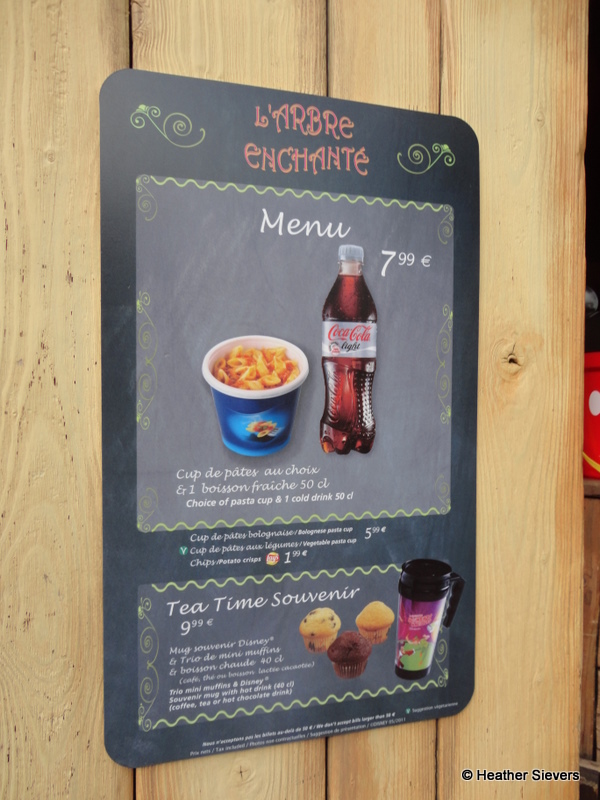 L'ARBRE
ENCHANTÉ
Menu
7 99 €
Coca-Cola
light
Cup de pâtes au choix
& 1 boisson fraîche 50 cl
Choice of pasta cup & 1 cold drink 50 cl
Cup de pâtes bolognaise / Bolognese pasta cup 5 99 €
V Cup de pâtes aux légumes / Vegetable pasta cup
Chips / Potato crisps Lay's 1 99 €
Tea Time Souvenir
9 99 €
Mug souvenir Disney®
& Trio de mini muffins
& boisson chaude 40 cl
(café, thé ou boisson lactée cacaotée)
Trio mini muffins & Disney®
Souvenir mug with hot drink (40 cl)
(coffee, tea or hot chocolate drink)
V Suggestion végétarienne
Nous n'acceptons pas les billets au-delà de 50 € / We don't accept bills larger than 50 €
Prix nets / Tax included / Photos non contractuelles / Suggestion de présentation / ©DISNEY
© Heather Sievers